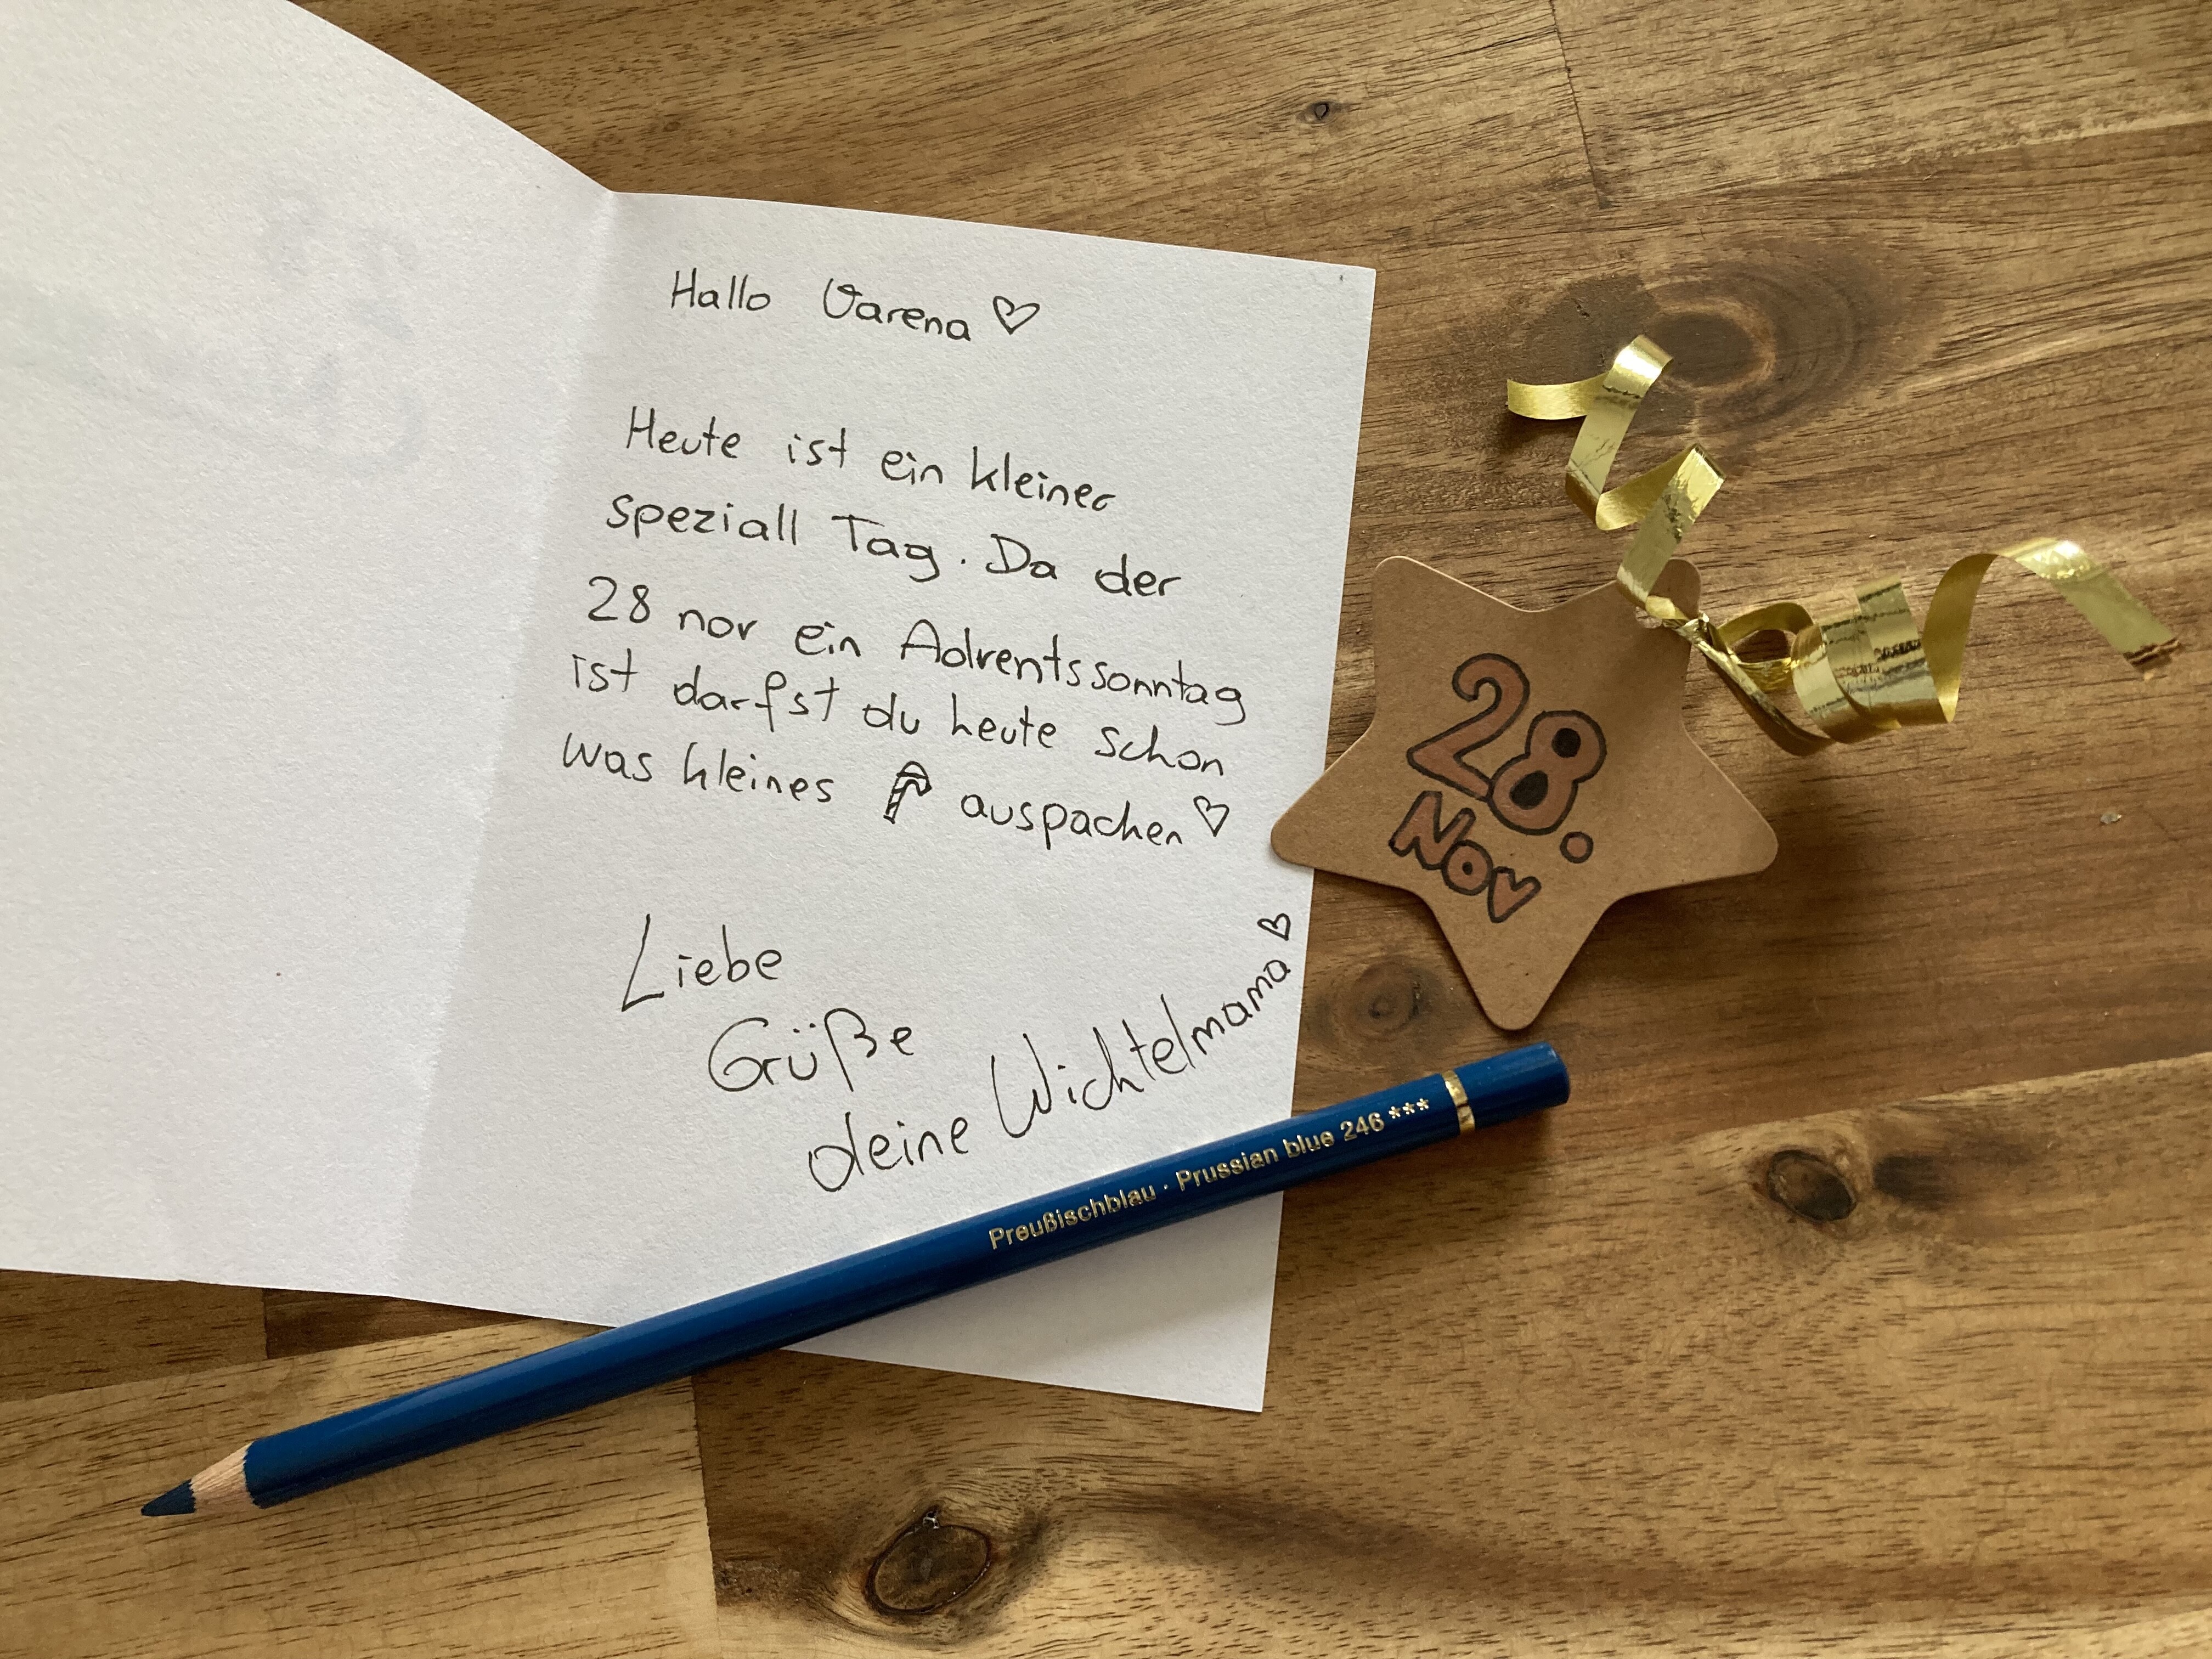 Hallo Varena ♡
Heute ist ein kleiner
speziall Tag. Da der
28 nov ein Adventssonntag
ist darfst du heute schon
was kleines auspacken ♡
Liebe
Grüße
deine Wichtelmama ♡
28.
Nov
Preußischblau · Prussian blue 246 ***